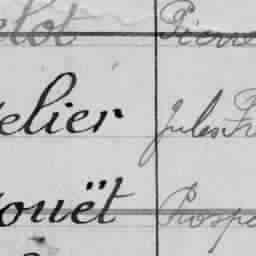 elot Pierre
elier Jules Fr
ouët Prospe